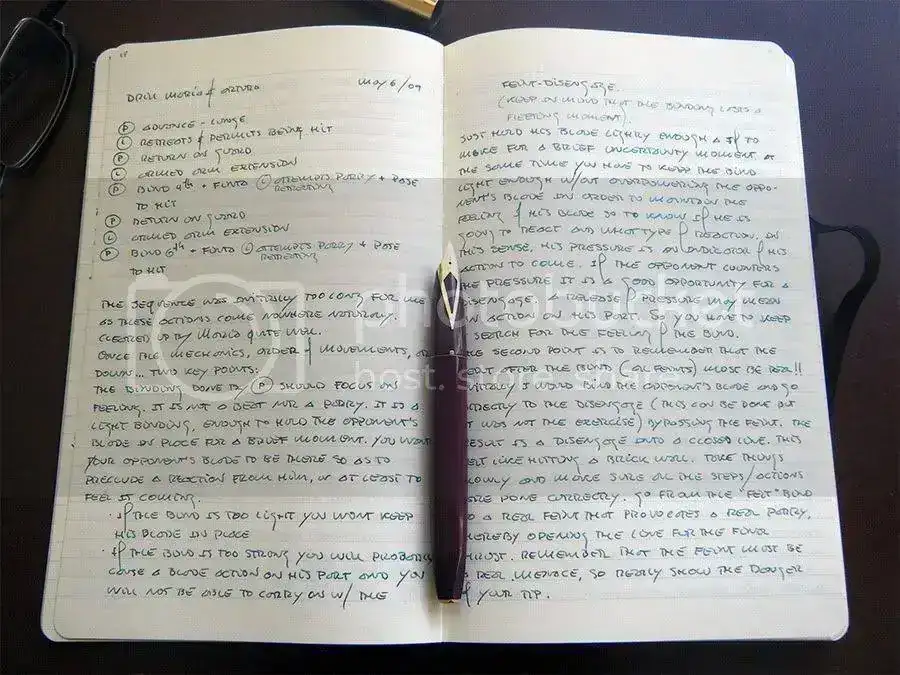 DRILL MARIO & ARTURO MAY 6/09
P ADVANCE - LUNGE
L RETREATS & PERMITS BEING HIT
P RETURN ON GUARD
L ARMED ARM EXTENSION
P BIND 4th + FINTA L ATTEMPTS PARRY + POSE
RETREATING
TO HIT
P RETURN ON GUARD
L ARMED ARM EXTENSION
P BIND 6th + FINTA L ATTEMPTS PARRY + POSE
RETREATING
TO HIT
THE SEQUENCE WAS INITIALLY TOO LONG FOR ME
AS THESE ACTIONS COME NOWHERE NATURALLY.
CLEARED UP BY MARIO QUITE WELL.
ONCE THE MECHANICS, ORDER OF MOVEMENTS, ARE
DOWN... TWO KEY POINTS:
THE BINDING DONE BY P SHOULD FOCUS ON
FEELING. IT IS NOT A BEAT NOR A PARRY. IT IS A
LIGHT BINDING, ENOUGH TO HOLD THE OPPONENT'S
BLADE IN PLACE FOR A BRIEF MOMENT. YOU WANT
YOUR OPPONENT'S BLADE TO BE THERE SO AS TO
PRECLUDE A REACTION FROM HIM, OR AT LEAST TO
FEEL IT COMING.
· IF THE BIND IS TOO LIGHT YOU WONT KEEP
HIS BLADE IN PLACE
· IF THE BIND IS TOO STRONG YOU WILL PROBABLY
CAUSE A BLADE ACTION ON HIS PART AND YOU
WILL NOT BE ABLE TO CARRY ON W/ THE
FEINT-DISENGAGE.
(KEEP IN MIND THAT THE BINDING LASTS A
FLEETING MOMENT).
JUST HOLD HIS BLADE LIGHLY ENOUGH AS IF TO
MAKE FOR A BRIEF UNCERTAINTY MOMENT. AT
THE SAME TIME YOU HAVE TO KEEP THE BIND
LIGHT ENOUGH W/OUT OVERPOWERING THE OPPO-
NENT'S BLADE IN ORDER TO MAINTAIN THE
FEELING OF HIS BLADE SO TO KNOW IF HE IS
GOING TO REACT AND WHAT TYPE OF REACTION. IN
THIS SENSE, HIS PRESSURE IS AN INDICATOR OF HIS
ACTION TO COME. IF THE OPPONENT COUNTERS
THE PRESSURE IT IS A GOOD OPPORTUNITY FOR A
DISENGAGE. A RELEASE OF PRESSURE MAY MEAN
AN ACTION ON HIS PART. SO YOU HAVE TO KEEP
SEARCH FOR THE FEELING OF THE BIND.
THE SECOND POINT IS TO REMEMBER THAT THE
FEINT AFTER THE BIND (ALL FEINTS) MUST BE REAL!!
INITIALLY I WOULD BIND THE OPPONENT'S BLADE AND GO
DIRECTLY TO THE DISENGAGE (THIS CAN BE DONE BUT
IT WAS NOT THE EXERCISE) BYPASSING THE FEINT. THE
RESULT IS A DISENGAGE INTO A CLOSED LINE. THIS
FELT LIKE HITTING A BRICK WALL. TAKE THINGS
SLOWLY AND MAKE SURE ALL THE STEPS/ACTIONS
ARE DONE CORRECTLY. GO FROM THE "FELT" BIND
TO A REAL FEINT THAT PROVOCATES A REAL PARRY,
THEREBY OPENING THE LINE FOR THE FINAL
THRUST. REMEMBER THAT THE FEINT MUST BE
A REAL MENACE, SO REALLY SHOW THE DANGER
OF YOUR TIP.
host. store. share